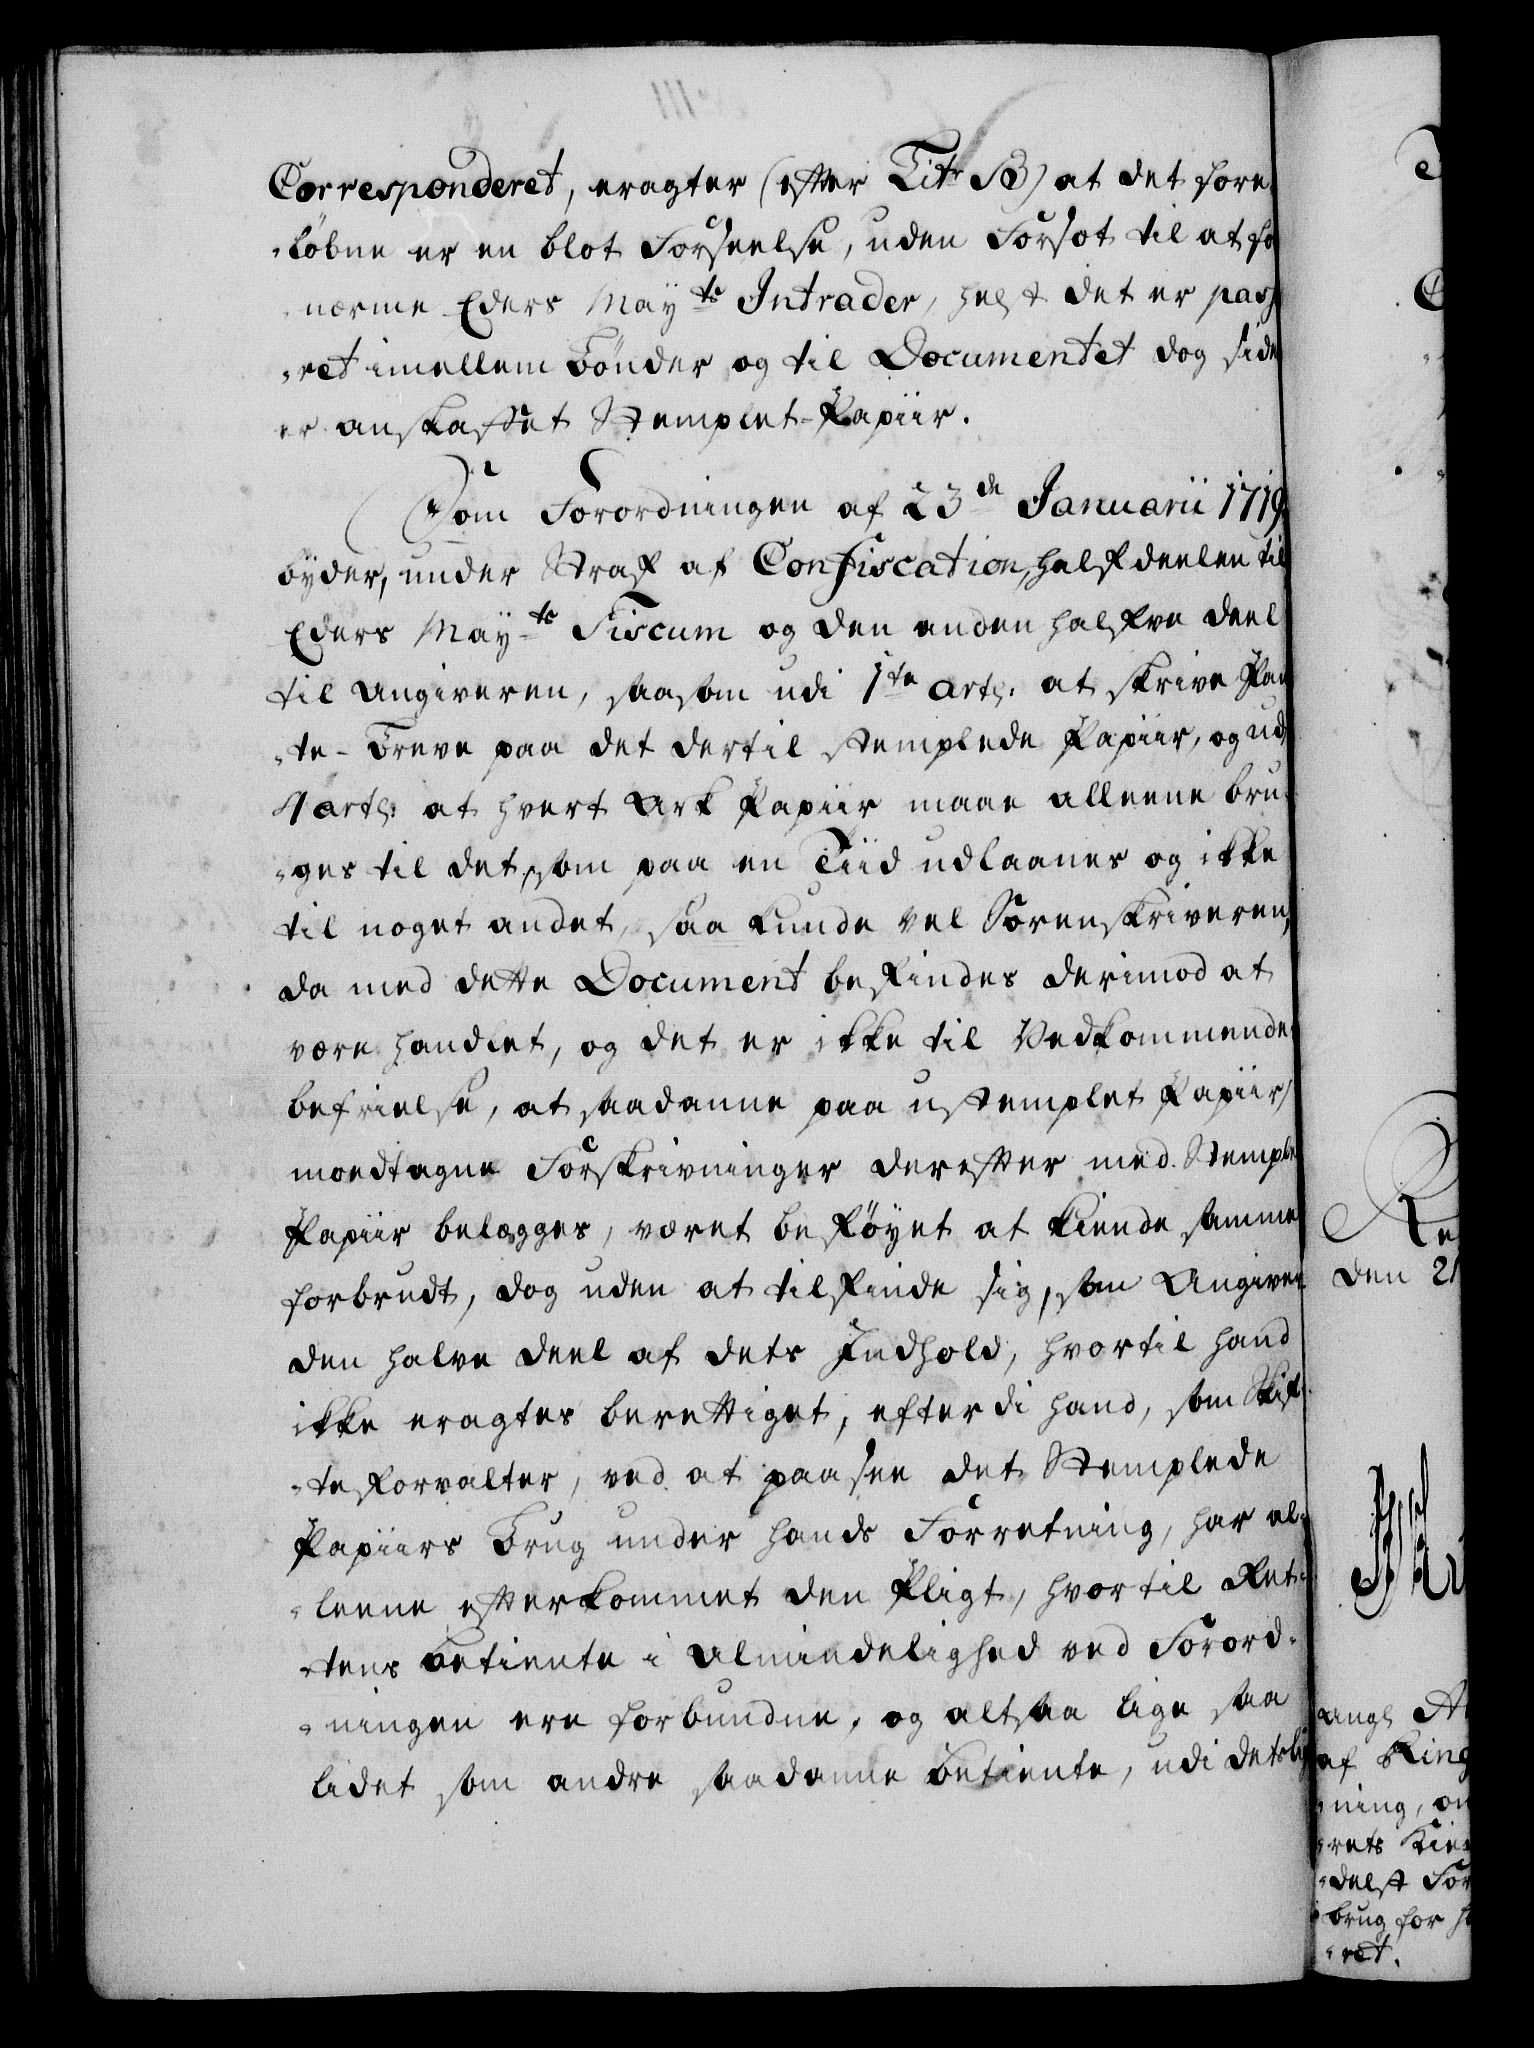 Corresponderet, eragter (efter Litr B) at det fore-
-løbne er en blot Forseelse, uden Forsæt til at for
nærme Eders Mayts Intrader, helst det er passe
-ret imellem Bønder og til Documentet dog siden
er anskaffet Stemplet-Papiir.
Som Forordningen af 23de Januarii 1719.
byder, under Straf af Confiscation, halfdeelen til
Eders Mayts Fiscum og den anden halfve deel
til Angiveren, saasom udi 1te artl: at skrive Pan
-te-Breve paa det dertil stemplede Papiir, og udi
4 artl: at hvert Ark Papiir maae alleene bru-
-ges til det, som paa en Tiid udlaanes og ikke
til noget andet, saa kunde vel Sorenskriveren,
da med dette Document befindes derimod at
være handlet, og det er ikke til Vedkommendes
befrielse, at saadanne paa ustemplet Papiir
modtagne Forskrivninger derefter med Stemplet
Papiir belægges, været beføyet at kiende samme
forbrudt, dog uden at tilfinde sig, som Angiver
den halve deel af dets Indhold, hvortil hand
ikke eragtes berettiget, efterdi hand, som Skif-
-teforvalter, ved at paasee det Stemplede
Papiirs Brug under hands Forretning, har al-
-leene efterkommet den Pligt, hvortil Ret-
-tens Betiente i Almindelighed ved Forord-
-ningen ere forbundne, og altsaa lige saa
lidet som andre saadanne Betiente, udi deslig
Re
den 21
angl
af Ring
-ning, om
-rets Kien
-delst For
brug for h
-ret.